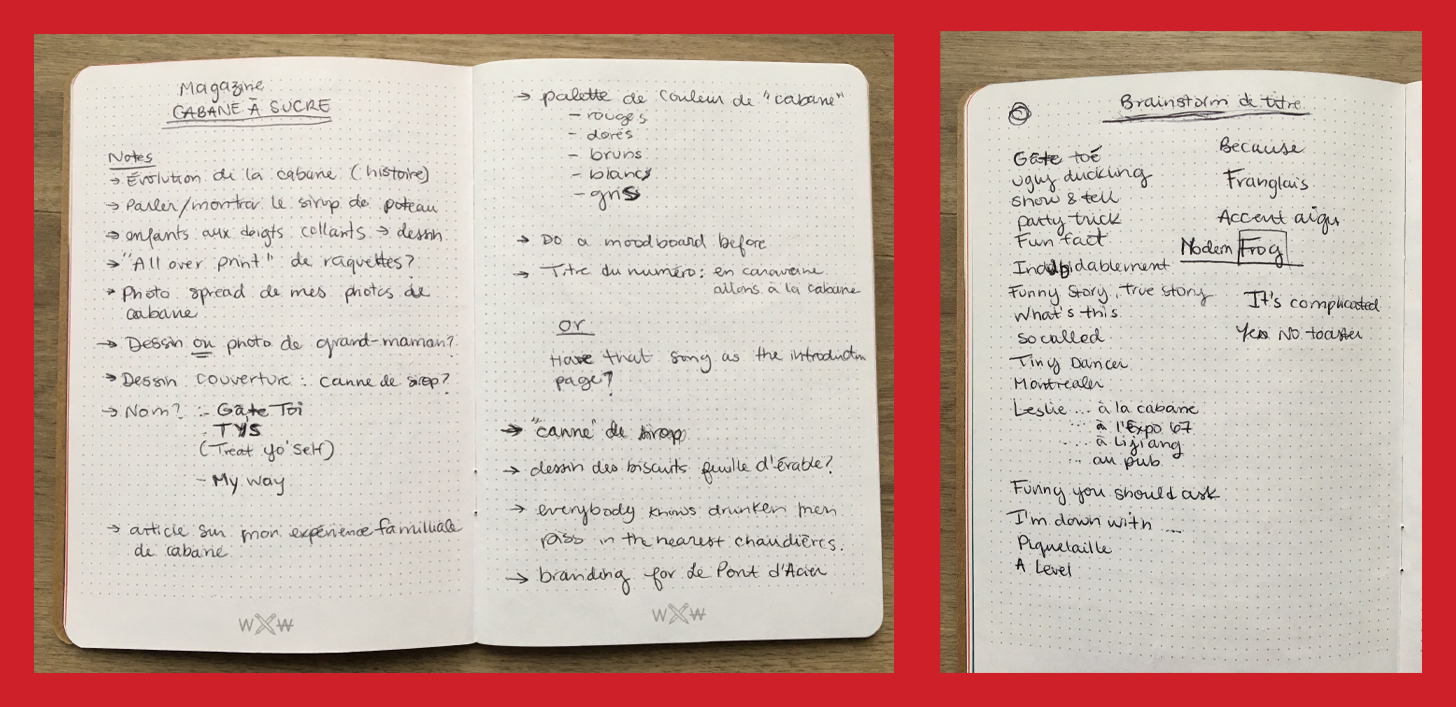 Magazine
CABANE À SUCRE
Notes
→ Évolution de la cabane (histoire)
→ Parler/montrer le sirop de poteau
→ enfants aux doigts collants → dessin
→ "All over print" de raquettes?
→ Photo spread de mes photos de
cabane
→ Dessin ou photo de grand-maman?
→ Dessin couverture : canne de sirop?
→ Nom? :- Gâte Toi
- TYS
(Treat yo'self)
- My way
→ article sur mon expérience familiale
de cabane
WXW
→ palette de couleur de "cabane"
- rouges
- dorés
- bruns
- blancs
- gris
→ Do a moodboard before
→ Titre du numéro: en caravane
allons à la cabane
or
Have that song as the introduction
page?
→ "canne" de sirop
→ dessin des biscuits feuille d'érable?
→ everybody knows drunken men
piss in the nearest chaudières.
→ branding for Le Pont d'Acier
WXW
Brainstorm de titre
Gâte toé
ugly duckling
show & tell
party trick
Fun fact
Funny story, true story
What's this
so called
Tiny Dancer
Montrealer
Leslie ... à la cabane
... à l'Expo '67
... à Lijiang
... au pub
Funny you should ask
I'm down with ...
Piquelaille
A Level
Because
Franglais
Accent aigu
Modern Frog
It's complicated
Yes No toaster